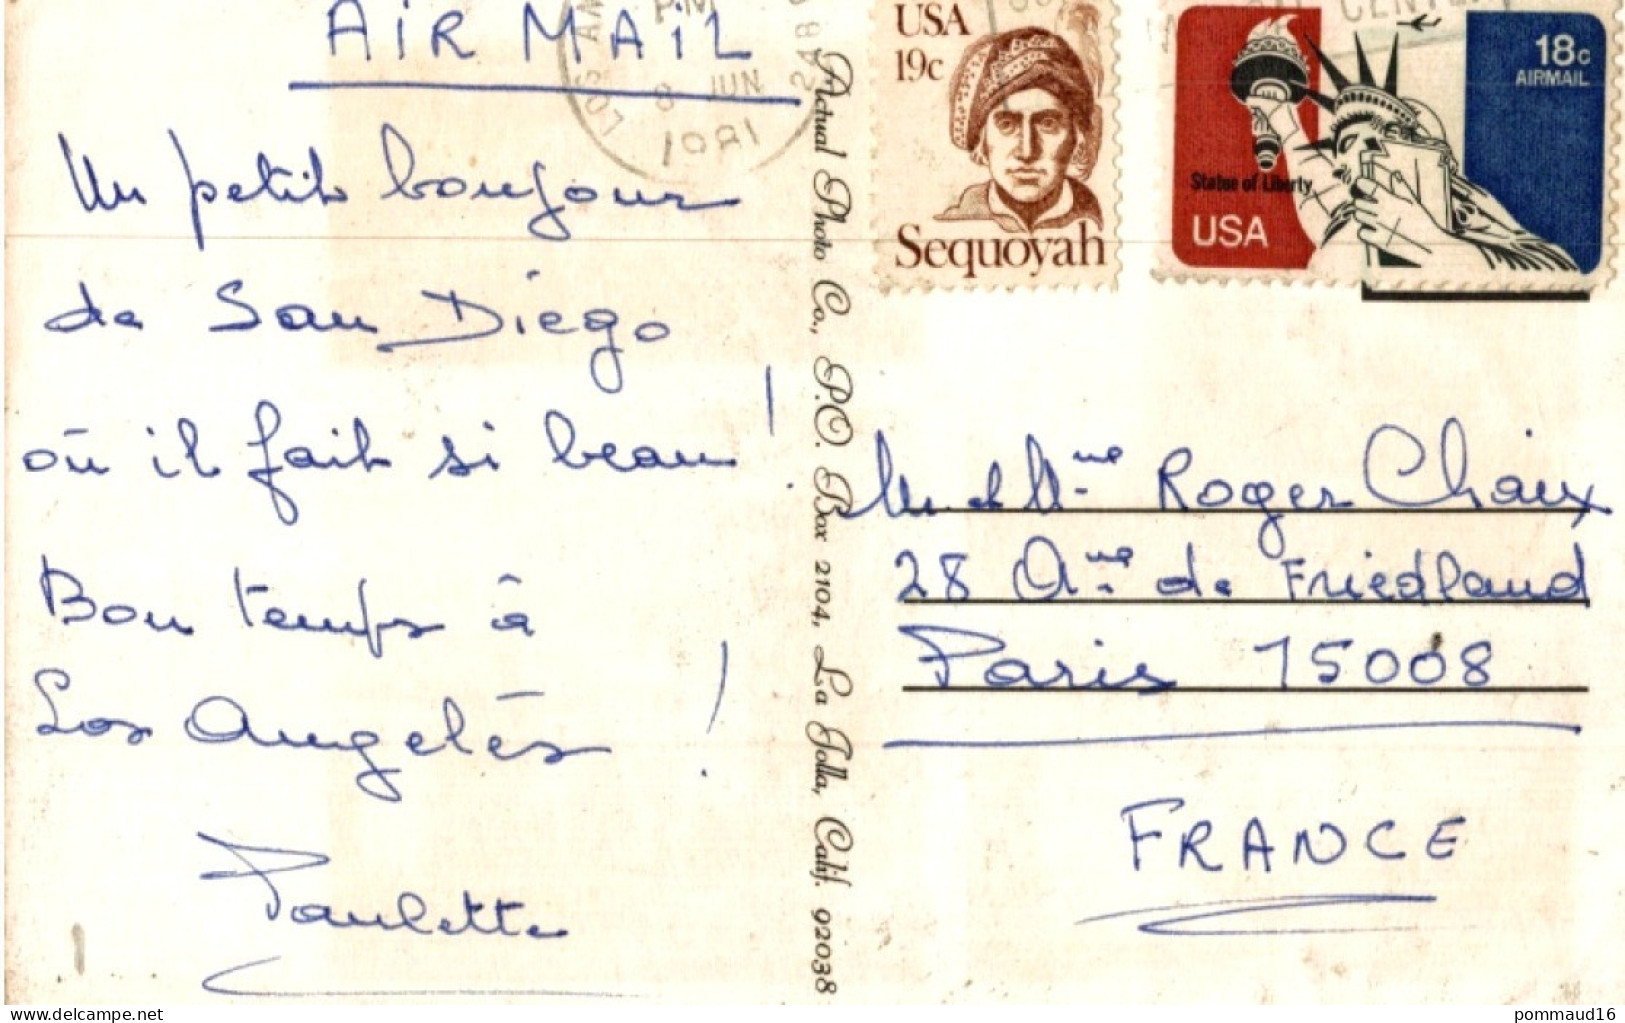 AIR MAIL
Un petit bonjour
de San Diego
où il fait si beau !
Bon temps à
Los Angelès !
Paulette
PM
8 JUN
1981
Actual Photo Co., P.O. Box 2104, La Jolla, Calif. 92038
USA
19c
Sequoyah
18c
AIRMAIL
Statue of Liberty
USA
M. et Mme Roger Chaix
28 Ave de Friedland
Paris 75008
FRANCE
delcampe.net
pommaud16